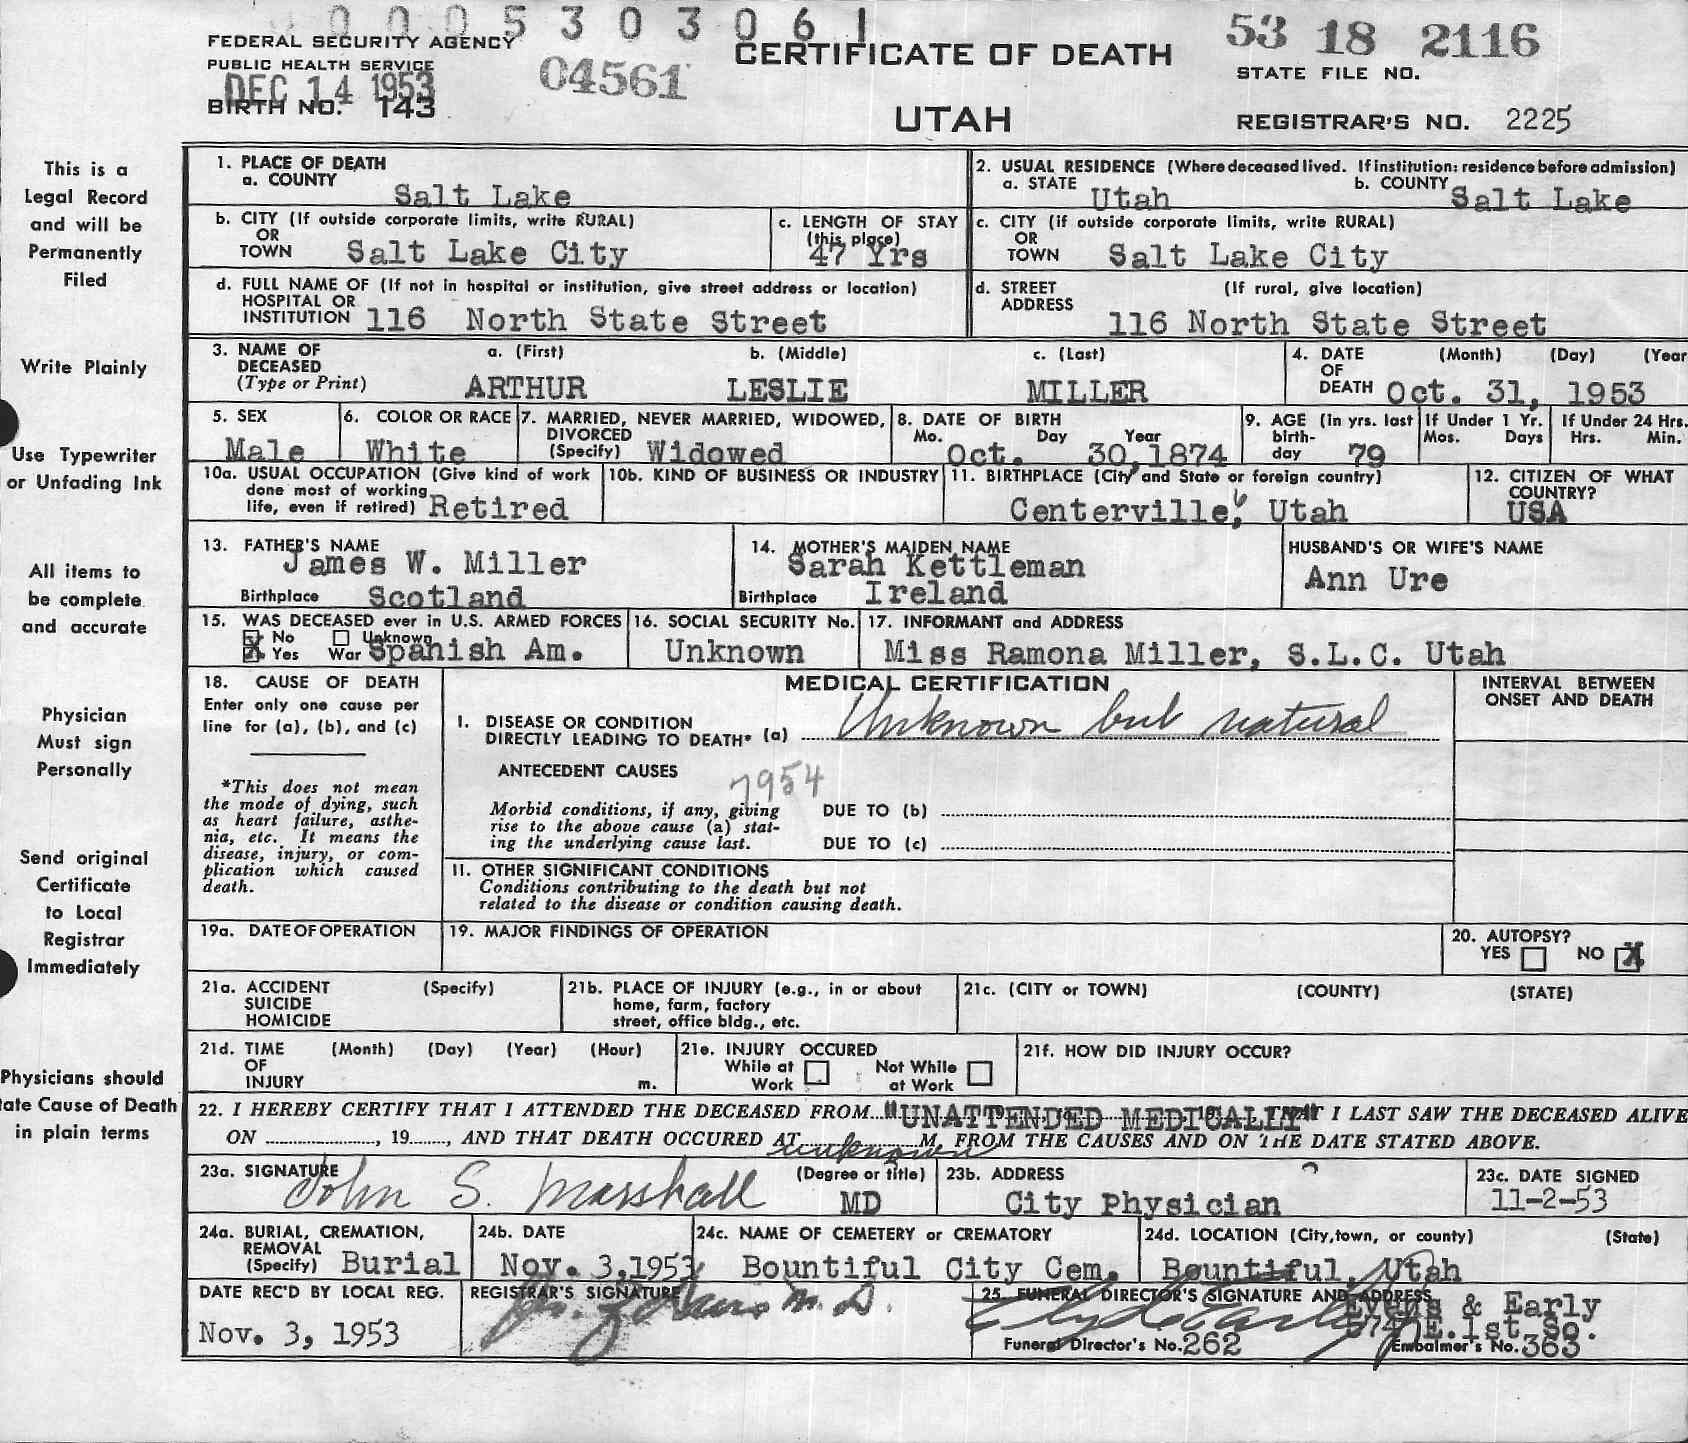 0005303061
FEDERAL SECURITY AGENCY
PUBLIC HEALTH SERVICE
DEC 14 1953
BIRTH NO. 143
04561
CERTIFICATE OF DEATH
UTAH
53 18 2116
STATE FILE NO.
REGISTRAR'S NO. 2225
This is a
Legal Record
and will be
Permanently
Filed
Write Plainly
Use Typewriter
or Unfading Ink
All items to
be complete
and accurate
Physician
Must sign
Personally
Send original
Certificate
to Local
Registrar
Immediately
Physicians should
tate Cause of Death
in plain terms
1. PLACE OF DEATH
a. COUNTY Salt Lake
2. USUAL RESIDENCE (Where deceased lived. If institution: residence before admission)
a. STATE Utah b. COUNTY Salt Lake
b. CITY (If outside corporate limits, write RURAL)
OR
TOWN Salt Lake City
c. LENGTH OF STAY
(this place)
47 Yrs
c. CITY (if outside corporate limits, write RURAL)
OR
TOWN Salt Lake City
d. FULL NAME OF (If not in hospital or institution, give street address or location)
HOSPITAL OR
INSTITUTION 116 North State Street
d. STREET (If rural, give location)
ADDRESS
116 North State Street
3. NAME OF a. (First) b. (Middle) c. (Last)
DECEASED
(Type or Print) ARTHUR LESLIE MILLER
4. DATE (Month) (Day) (Year
OF
DEATH Oct. 31, 1953
5. SEX
Male
6. COLOR OR RACE
White
7. MARRIED, NEVER MARRIED, WIDOWED,
DIVORCED
(Specify) Widowed
8. DATE OF BIRTH
Mo. Day Year
Oct. 30, 1874
9. AGE (in yrs. last
birth-
day 79
If Under 1 Yr.
Mos. Days
If Under 24 Hrs.
Hrs. Min.
10a. USUAL OCCUPATION (Give kind of work
done most of working
life, even if retired) Retired
10b. KIND OF BUSINESS OR INDUSTRY
11. BIRTHPLACE (City and State or foreign country)
Centerville, Utah
12. CITIZEN OF WHAT
COUNTRY?
USA
13. FATHER'S NAME
James W. Miller
Birthplace Scotland
14. MOTHER'S MAIDEN NAME
Sarah Kettleman
Birthplace Ireland
HUSBAND'S OR WIFE'S NAME
Ann Ure
15. WAS DECEASED ever in U.S. ARMED FORCES
No Unknown
X Yes War Spanish Am.
16. SOCIAL SECURITY No.
Unknown
17. INFORMANT and ADDRESS
Miss Ramona Miller, S.L.C. Utah
18. CAUSE OF DEATH
Enter only one cause per
line for (a), (b), and (c)
*This does not mean
the mode of dying, such
as heart failure, asthe-
nia, etc. It means the
disease, injury, or com-
plication which caused
death.
MEDICAL CERTIFICATION
I. DISEASE OR CONDITION
DIRECTLY LEADING TO DEATH* (a) Unknown but natural
ANTECEDENT CAUSES
7954
Morbid conditions, if any, giving
rise to the above cause (a) stat-
ing the underlying cause last.
DUE TO (b)
DUE TO (c)
11. OTHER SIGNIFICANT CONDITIONS
Conditions contributing to the death but not
related to the disease or condition causing death.
INTERVAL BETWEEN
ONSET AND DEATH
19a. DATE OF OPERATION
19. MAJOR FINDINGS OF OPERATION
20. AUTOPSY?
YES NO X
21a. ACCIDENT (Specify)
SUICIDE
HOMICIDE
21b. PLACE OF INJURY (e.g., in or about
home, farm, factory
street, office bldg., etc.
21c. (CITY or TOWN) (COUNTY) (STATE)
21d. TIME (Month) (Day) (Year) (Hour)
OF
INJURY m.
21e. INJURY OCCURED
While at Work
Not While at Work
21f. HOW DID INJURY OCCUR?
22. I HEREBY CERTIFY THAT I ATTENDED THE DECEASED FROM "UNATTENDED MEDICALLY" THAT I LAST SAW THE DECEASED ALIVE
ON , 19 , AND THAT DEATH OCCURED AT unknown M, FROM THE CAUSES AND ON THE DATE STATED ABOVE.
23a. SIGNATURE (Degree or title)
John S. Marshall MD
23b. ADDRESS
City Physician
23c. DATE SIGNED
11-2-53
24a. BURIAL, CREMATION,
REMOVAL
(Specify) Burial
24b. DATE
Nov. 3, 1953
24c. NAME OF CEMETERY or CREMATORY
Bountiful City Cem.
24d. LOCATION (City, town, or county) (State)
Bountiful, Utah
DATE REC'D BY LOCAL REG.
Nov. 3, 1953
REGISTRAR'S SIGNATURE
M.D.
25. FUNERAL DIRECTOR'S SIGNATURE AND ADDRESS
Clyde Early
Evans & Early
574 E. 1st So.
Funeral Director's No. 262
Embalmer's No. 363